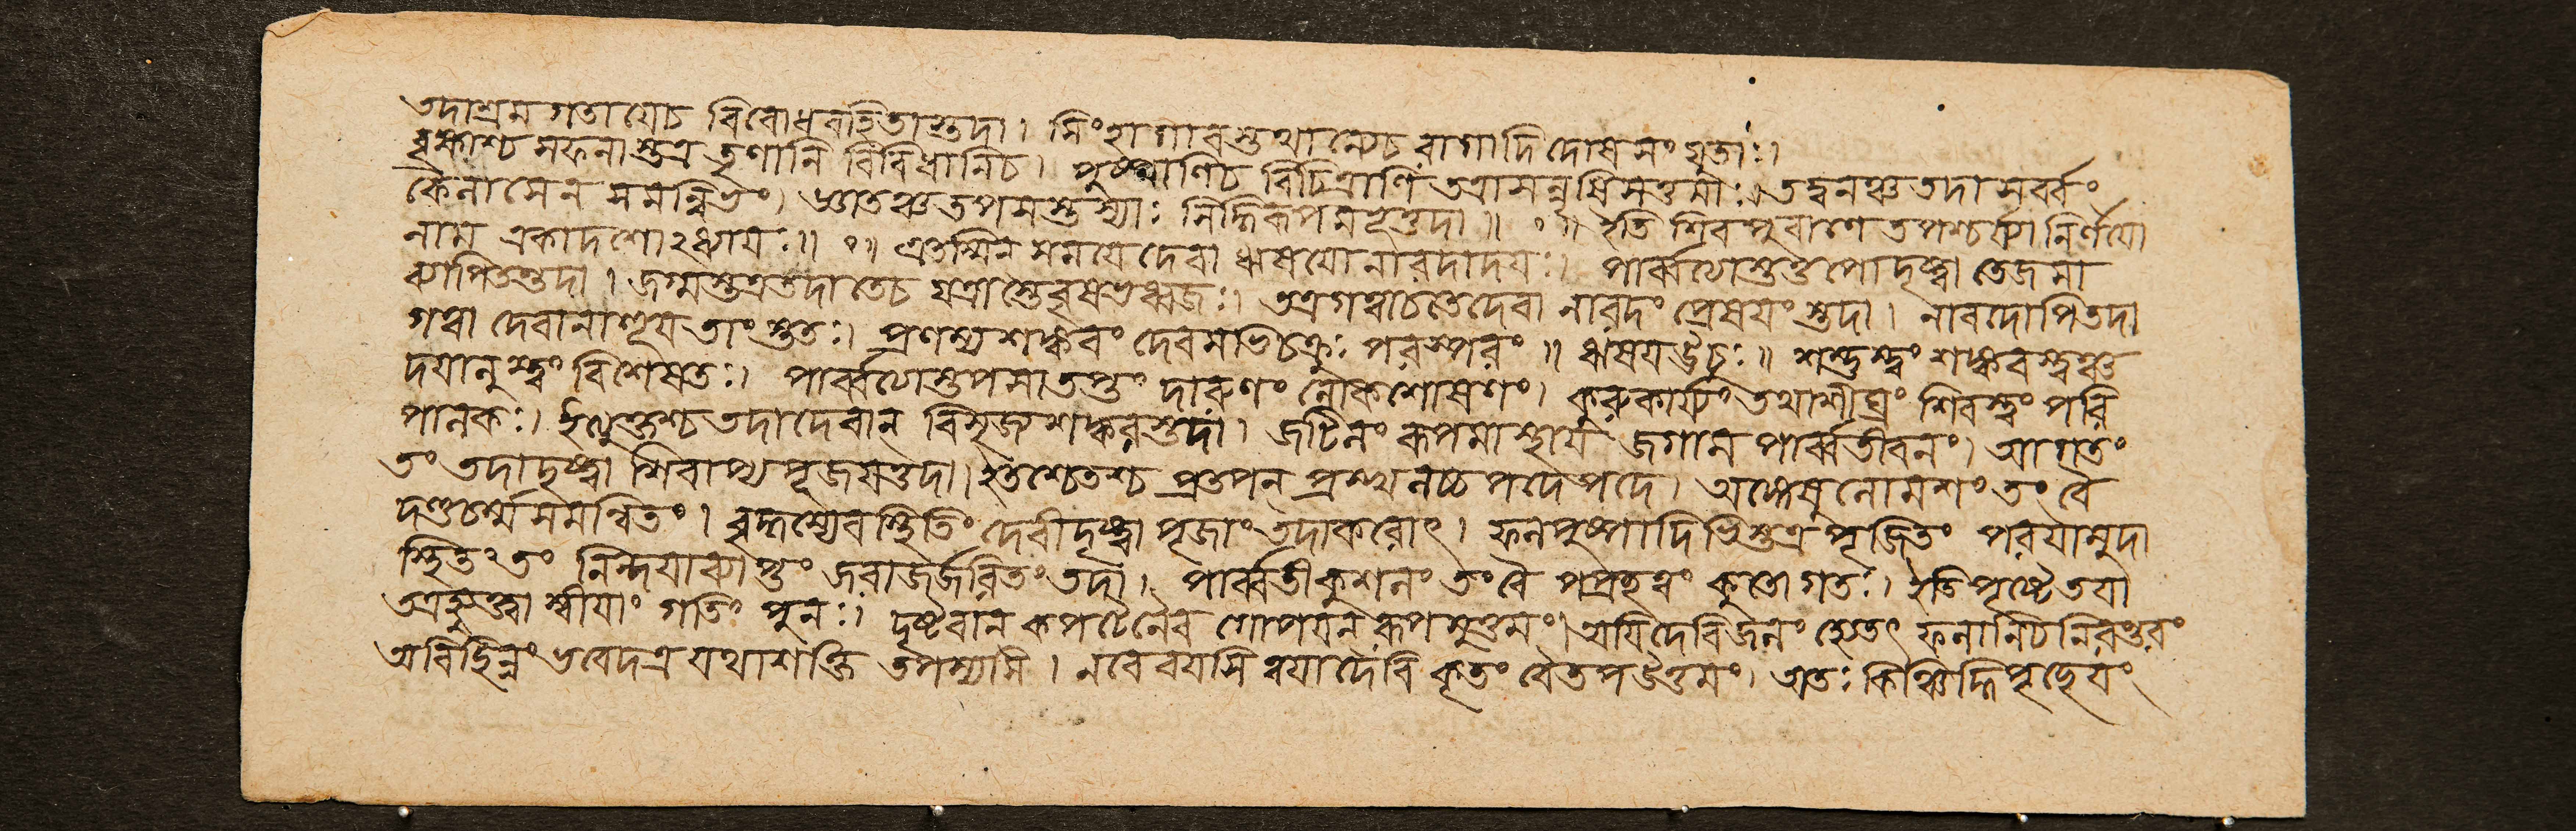 তদাশ্রম গতা যেচ বিবোধবহিতাস্তদা। সিংহাগাবস্তথান্যেচ বাগাদি দোষসংযুতাঃ।
বৃক্ষাশ্চ সফলাস্তত্র তৃণানি বিবিধানিচ। পুষ্পাণিচ বিচিত্রাণি তত্রাসন্নৃষিসত্তমাঃ। তদ্বনঞ্চ তদা সর্ব্বং
কৈলাসেন সমন্বিতং। জ্ঞাতঞ্চ তপসস্তস্যাঃ সিদ্ধিরূপমভূত্তদা॥ ০॥ ইতি শিবপুরাণে তপশ্চর্য্যা নির্ণযো
নাম একাদশোঽধ্যাযঃ॥ ০॥ এতস্মিন সমযে দেবা ঋষযো নারদাদযঃ। পার্ব্বত্যাস্তত্তপো দৃষ্ট্বা তেজসা
ব্যাপিতস্তদা। জগ্মস্তত্র তদা তেচ যত্রাস্তে বৃষভধ্বজঃ। তত্র গত্বা চ তে দেবা নারদং প্রেষযংস্তদা। নাবদোপি তদা
গত্বা দেবানাশূয তাং স্তুতঃ। প্রণম্য শঙ্কবং দেবমভিচক্রুঃ পরস্পরং॥ ঋষযঊচুঃ॥ শম্ভুস্ত্বং শঙ্কবস্ত্বঞ্চ
দযালুস্ত্বং বিশেষতঃ। পার্ব্বত্যাস্তপসা তপ্তং দারুণং লোকশোষণং। কুরু কার্য্যং তথা শীঘ্রং শিবস্ত্বং পরি
পালকঃ। ইত্যুক্তশ্চ তদা দেবান বিসৃজ্য শঙ্করস্তদা। জটিলং রূপমাস্থায জগাম পার্ব্বতীবনং। আগতং
তং তদা দৃষ্ট্বা শিবাপ্যপূজযত্তদা। ইতশ্চেতশ্চ প্রতপন প্রস্খলচ্চ পদে পদে। অঙ্গেষু লোমশং তং বৈ
দণ্ডচর্ম্মসমন্বিতং। বৃদ্ধস্যেব স্থিতিং দেবী দৃষ্ট্বা পূজাং তদাকরোৎ। ফলপুষ্পাদিভিস্তত্র পূজিতং পরযামুদা
স্থিতং তং নিন্দযা ব্যাপ্তং জবাজর্জরিতং তদা। পার্ব্বতী কুশলং তং বৈ পপ্রচ্ছ ত্বং কুতো গতঃ। ইতি পৃষ্টে তযা
তত্র মুক্ত্বা স্বীযাং গতিং পুনঃ। দৃষ্টবান কপটেনৈব গোপযন রূপমুত্তমং। অযি দেবি জলং হ্যেতৎ ফলানিচ নিরন্তরং
অবিচ্ছিন্নং ভবেদত্র যথাশক্তি তপস্যসি। নবে বযসি ত্বযা দেবি কৃতং বৈ তপ উত্তমং। অতঃ কিঞ্চিদ্ধি পৃচ্ছেযং